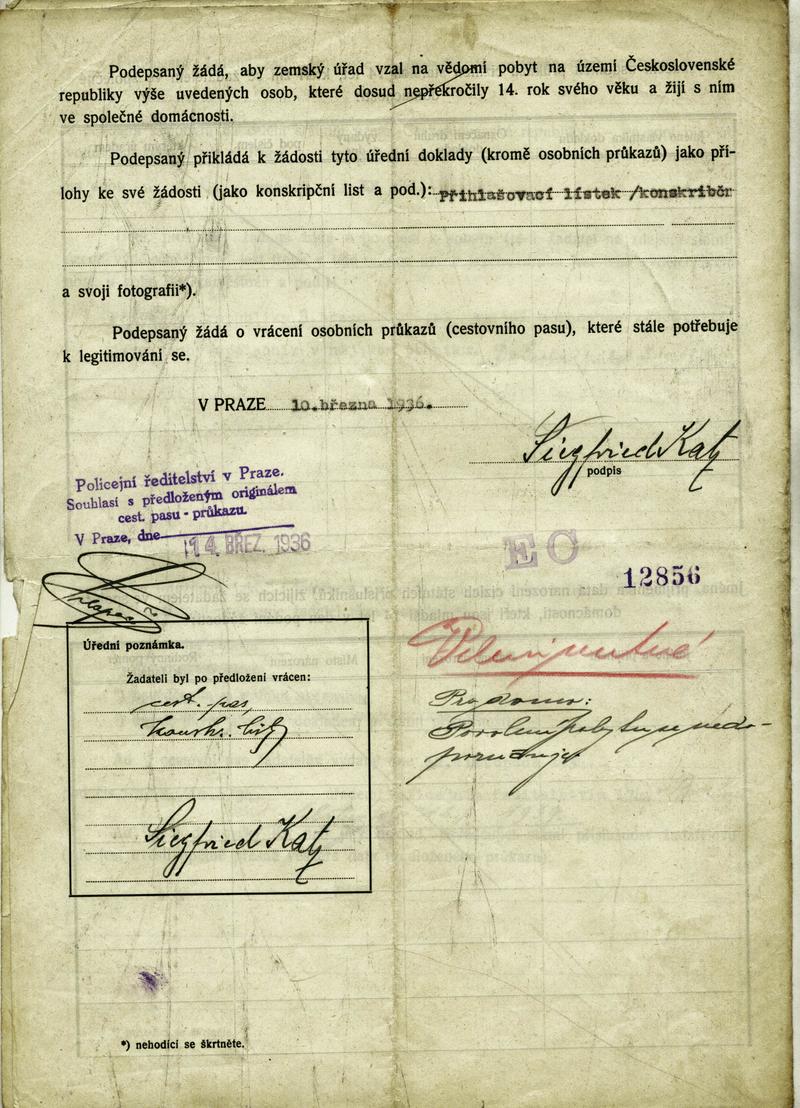 Podepsaný žádá, aby zemský úřad vzal na vědomí pobyt na území Československé
republiky výše uvedených osob, které dosud nepřekročily 14. rok svého věku a žijí s ním
ve společné domácnosti.
Podepsaný přikládá k žádosti tyto úřední doklady (kromě osobních průkazů) jako pří-
lohy ke své žádosti (jako konskripční list a pod.): Přihlašovací lístek /konskribčr
a svoji fotografii*).
Podepsaný žádá o vrácení osobních průkazů (cestovního pasu), které stále potřebuje
k legitimování se.
V PRAZE 10.března 1936.
Siegfried Katz
podpis
Policejní ředitelství v Praze.
Souhlasí s předloženým originálem
cest. pasu - průkazu
V Praze, dne 14. BŘEZ. 1936
EC
12856
Úřední poznámka.
Žadateli byl po předložení vrácen:
cest. pas,
konsk. list
Siegfried Katz
Pro domo:
Povolení pobytu se nedo-
poručuje.
*) nehodící se škrtněte.